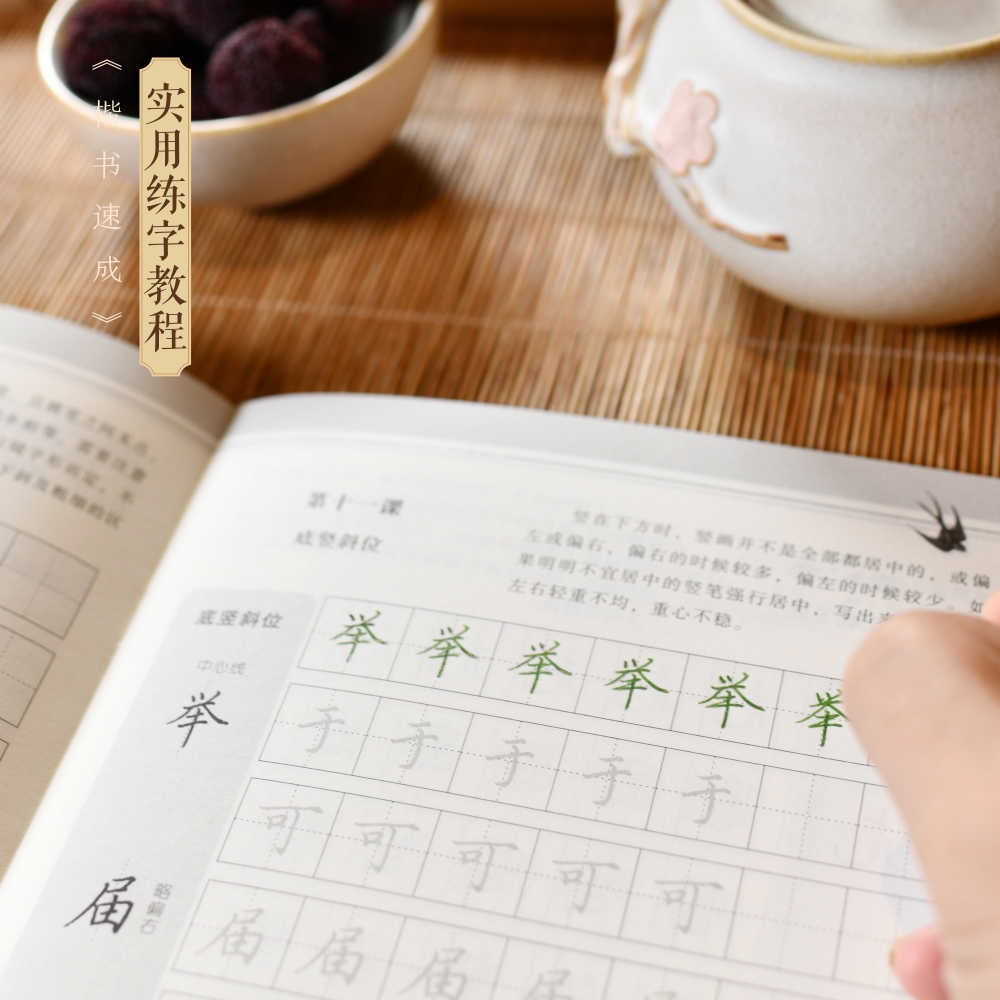 实用练字教程
《楷书速成》
第十一课
底竖斜位
竖在下方时，竖画并不是全部都居中的，或偏
左或偏右，偏右的时候较多，偏左的时候较少。如
果明明不宜居中的竖笔强行居中，写出来
左右轻重不均，重心不稳。
底竖斜位
中心线
举
举举举举举举
于于于于于
可可可可可
届
略偏右
届届届届届